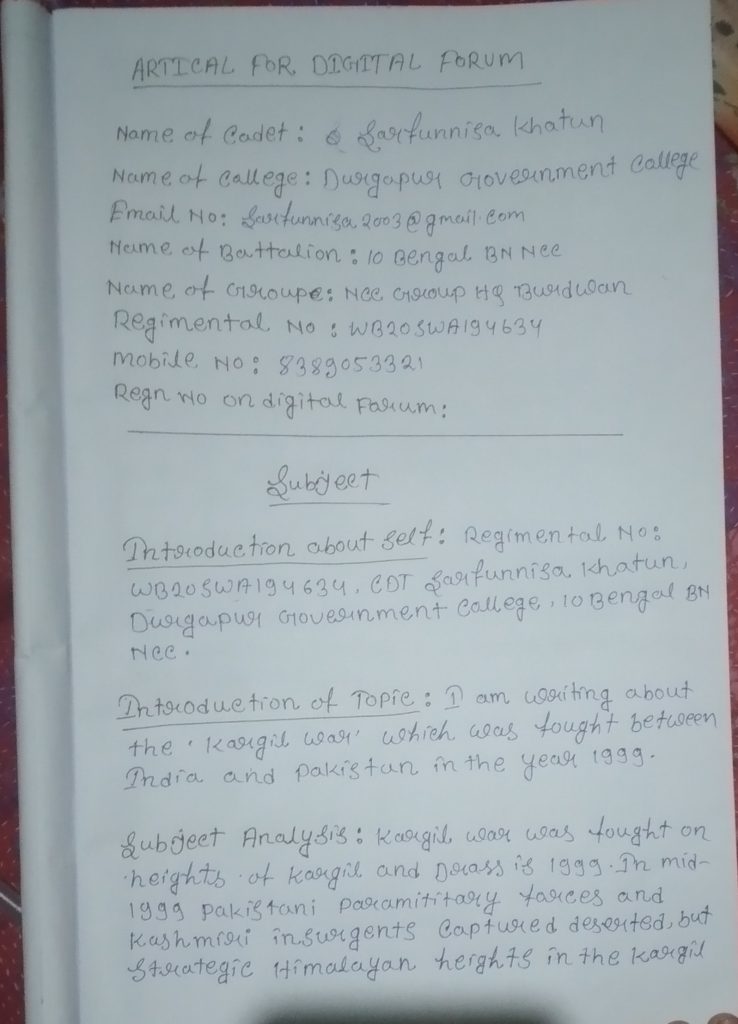 ARTICAL FOR DIGITAL FORUM
Name of Cadet: Sarfunnisa Khatun
Name of College: Durgapur Government College
Email No: Sarfunnisa2003@gmail.com
Name of Battalion: 10 Bengal BN NCC
Name of Groupe: NCC Group HQ Burdwan
Regimental No: WB20SWA194634
Mobile No: 8389053321
Regn No on digital Forum:
Subject
Introduction about Self: Regimental No:
WB20SWA194634, CDT Sarfunnisa Khatun,
Durgapur Government College, 10 Bengal BN
NCC.
Introduction of Topic: I am writing about
the 'Kargil war' which was fought between
India and Pakistan in the year 1999.
Subject Analysis: Kargil war was fought on
heights of Kargil and Drass is 1999. In mid-
1999 Pakistani Paramititary forces and
Kashmiri insurgents Captured deserted, but
Strategic Himalayan heights in the Kargil